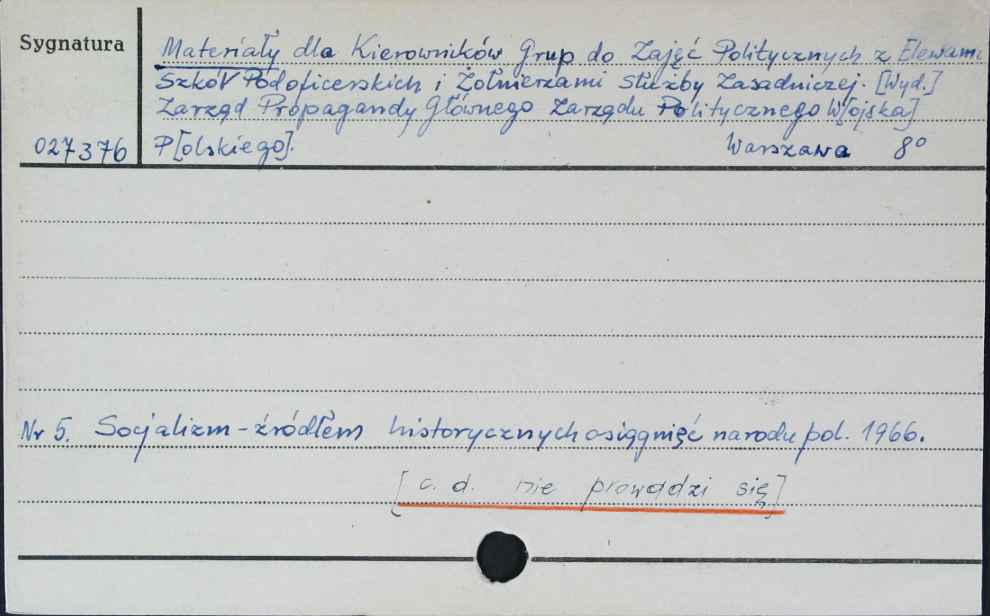 Sygnatura
Materiały dla Kierowników Grup do Zajęć Politycznych z Elewami
Szkół Podoficerskich i Żołnierzami Służby Zasadniczej. [Wyd.]
Zarząd Propagandy Głównego Zarządu Politycznego W[ojska]
027376 P[olskiego]. Warszawa 8°
Nr 5. Socjalizm - źródłem historycznych osiągnięć narodu pol. 1966.
[c. d. nie prowadzi się]